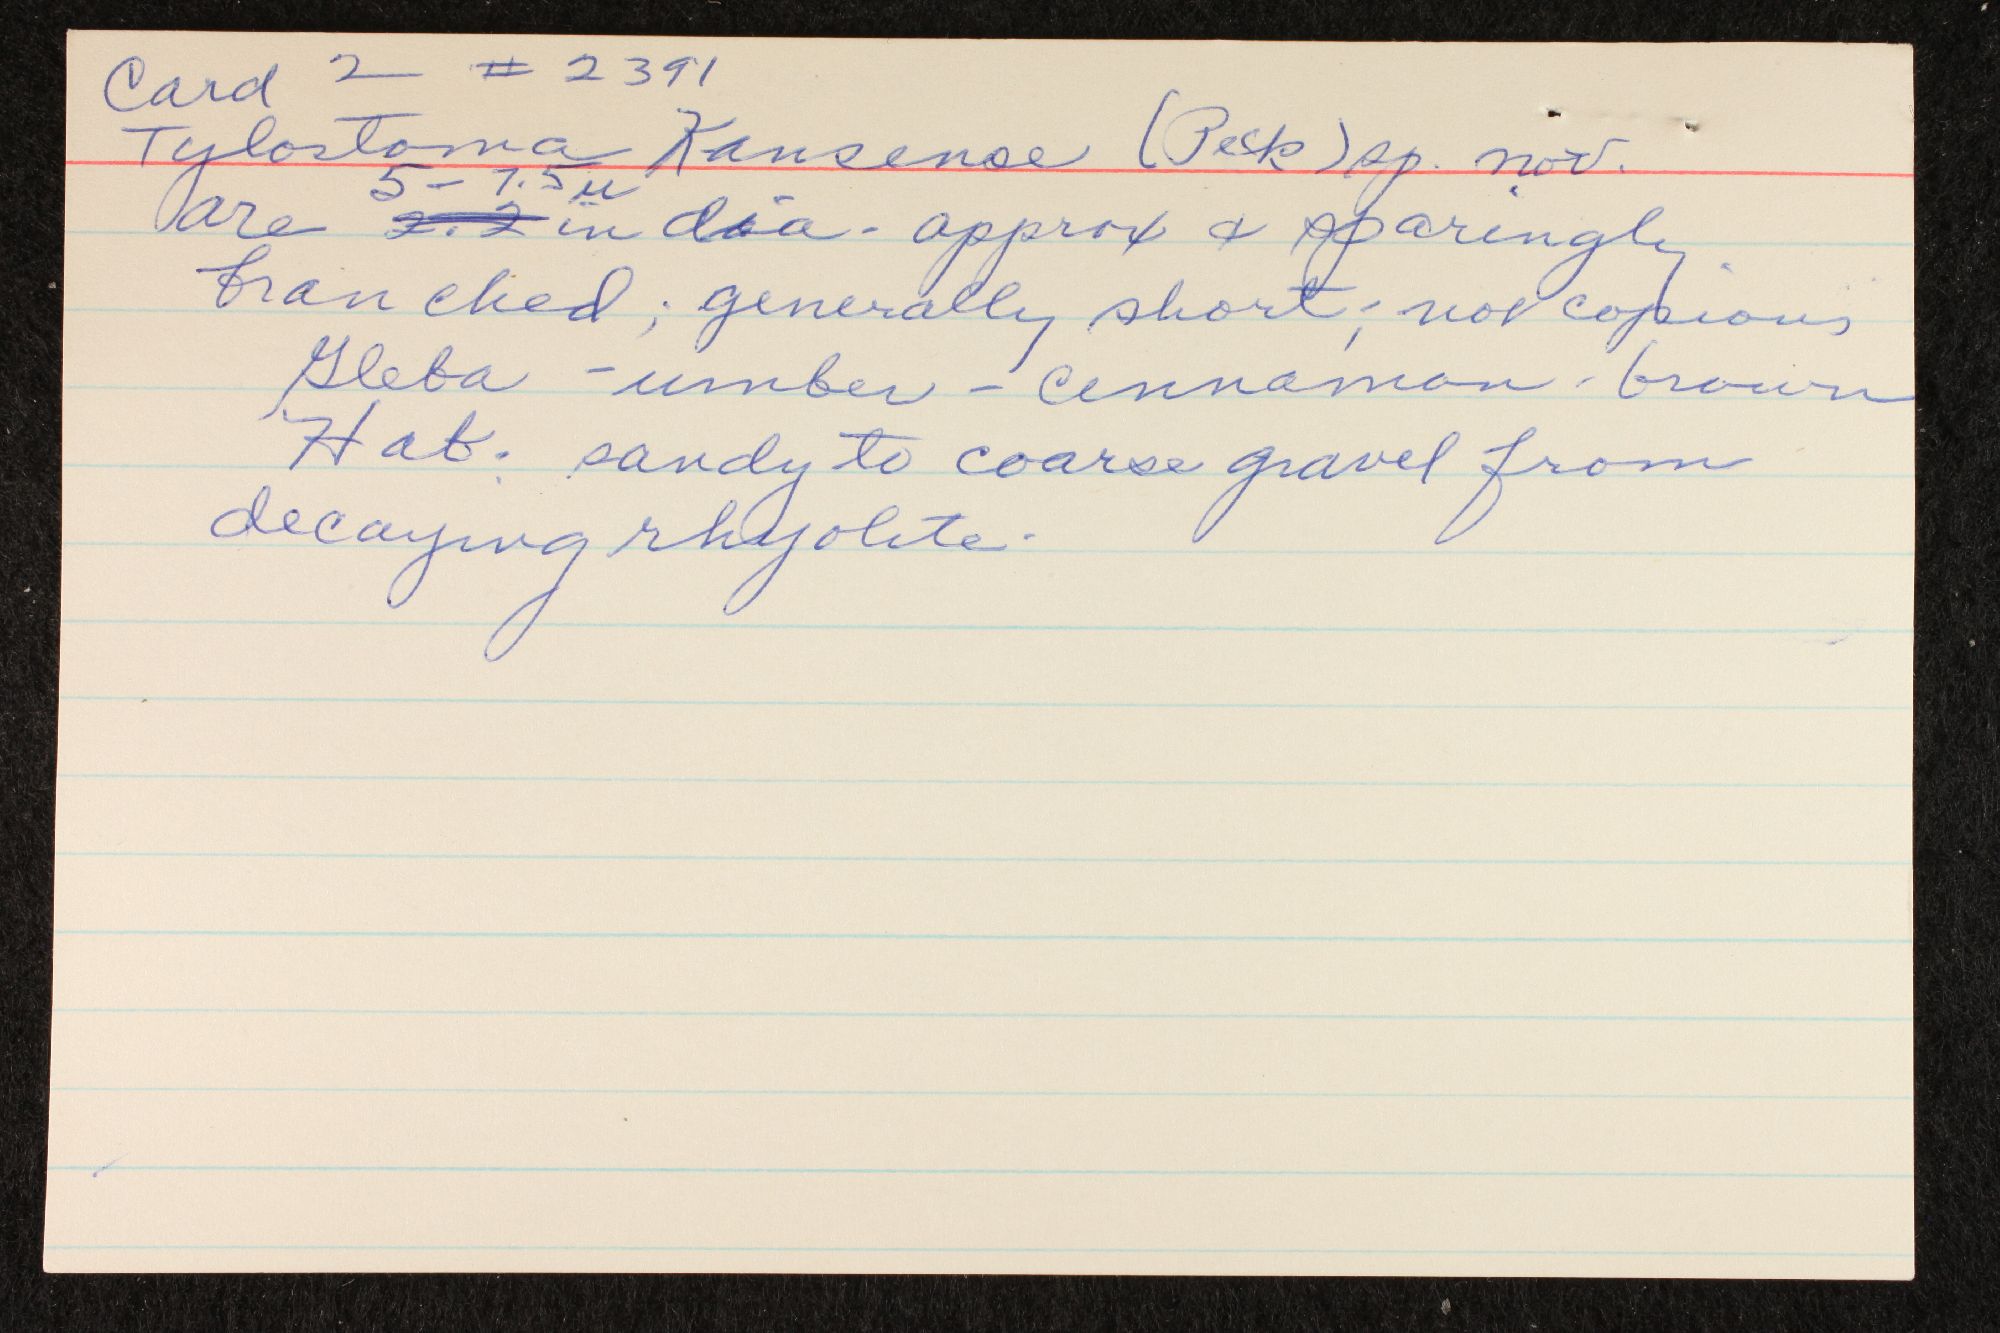 Card 2 # 2391
Tylostoma Kansense (Peck) sp. nov.
5 - 7.5 u
are 2.2 in dia. approx & sparingly
branched; generally short; not copious
Gleba - umber - cennamon - brown
Hab. sandy to coarse gravel from
decaying rhyolite.